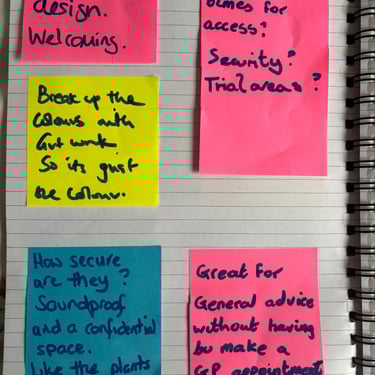 design.
Welcoming.
times for
access?
Security?
Trial areas?
Break up the
colours with
Art work
So its just
one colour.
How secure
are they?
Soundproof
and a confidential
space.
Like the plants
Great for
General advice
without having
to make a
GP appointment